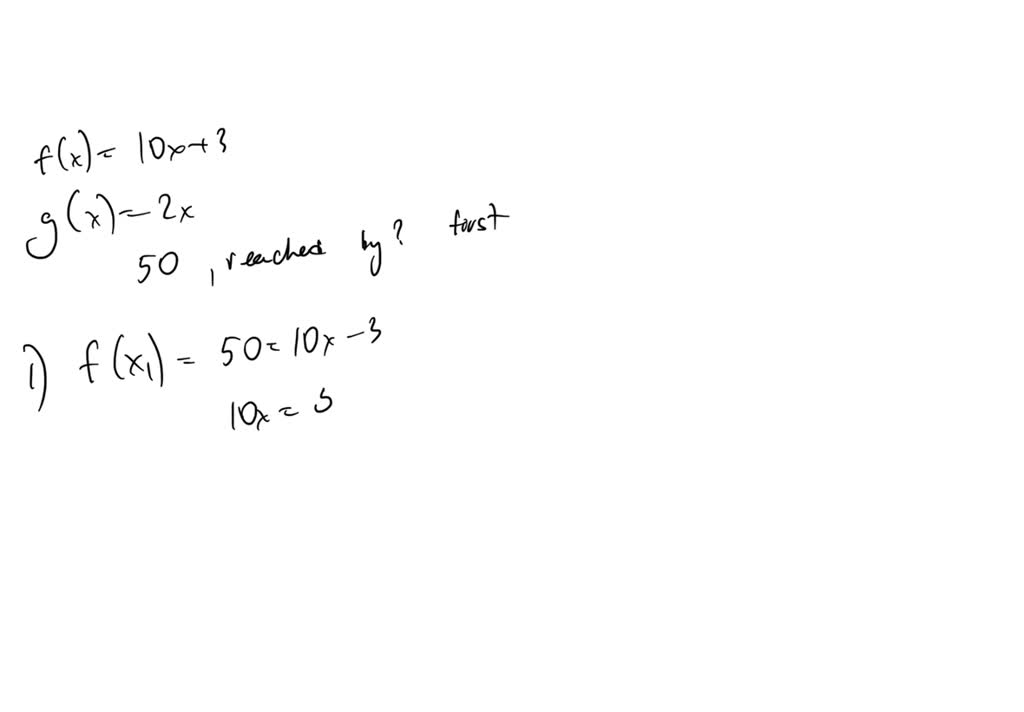 f(x) = 10x+3
g(x) = 2x
50 , reached by? first
1) f(x₁) = 50 = 10x - 3
10x = 5